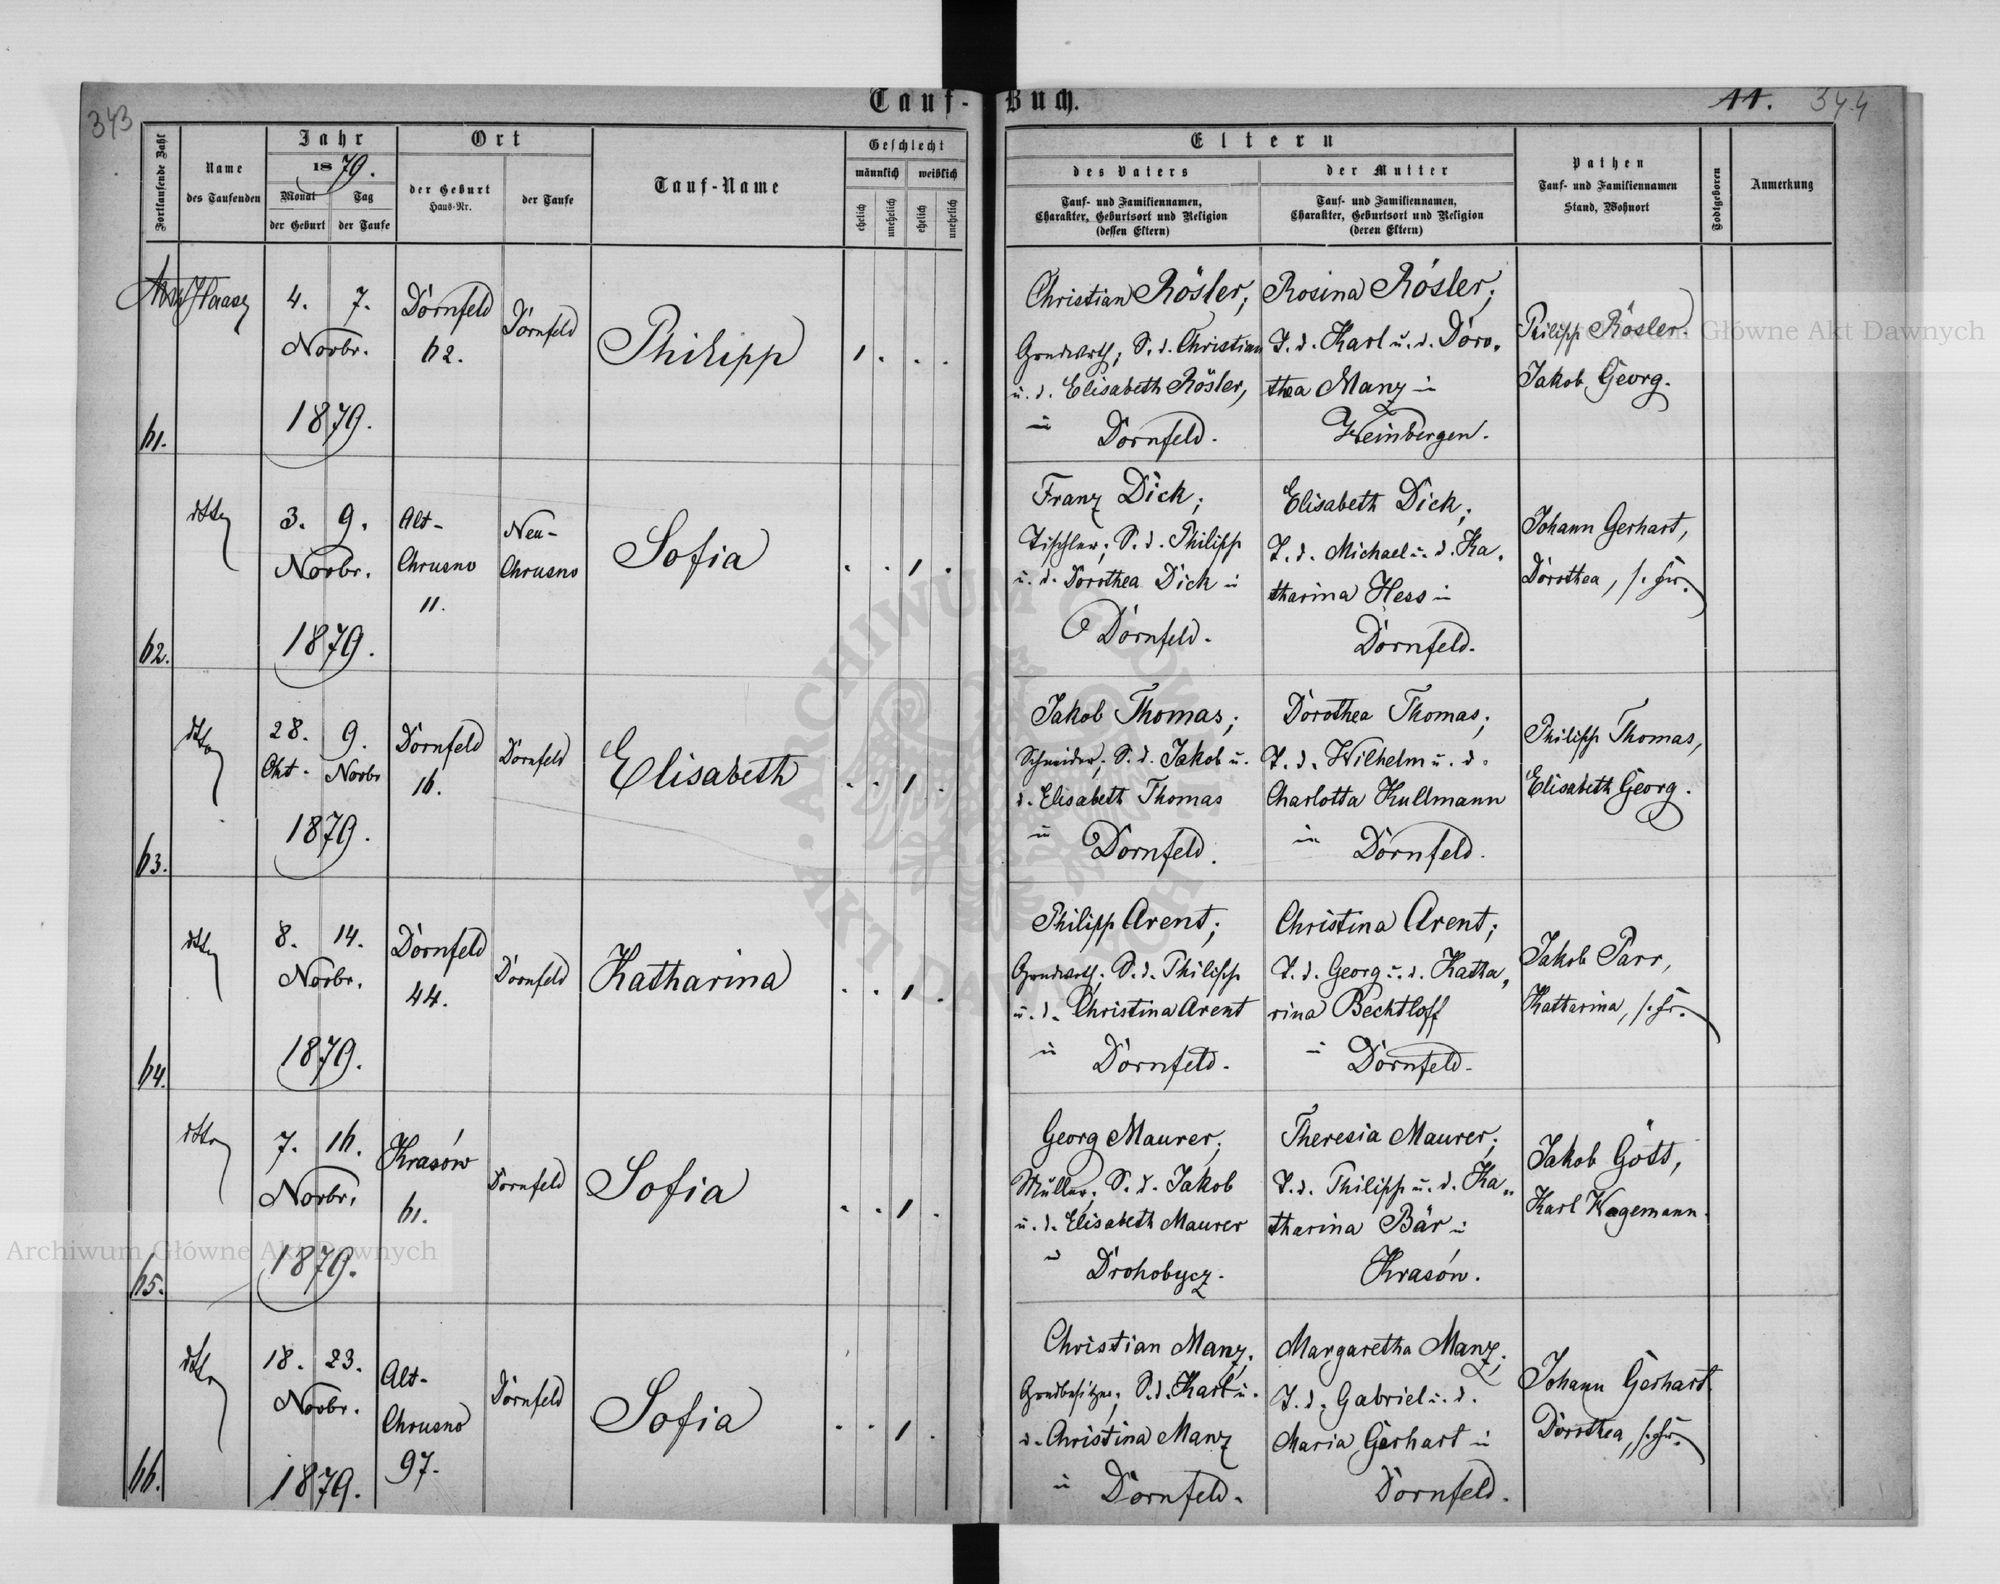 343
Tauf-Buch.
11. 344
Fortlaufende Zahl
Name
des Taufenden
Jahr
1879.
Monat
Tag
der Geburt
der Taufe
Ort
der Geburt
Haus-Nr.
der Taufe
Tauf-Name
Geschlecht
männlich
weiblich
ehelich
unehelich
ehelich
unehelich
Eltern
des Vaters
Tauf- und Familiennamen,
Charakter, Geburtsort und Religion
(dessen Eltern)
der Mutter
Tauf- und Familiennamen,
Charakter, Geburtsort und Religion
(deren Eltern)
Pathen
Tauf- und Familiennamen
Stand, Wohnort
Todtgeboren
Anmerkung
61.
4. 7.
Novbr.
1879.
Dornfeld
62.
Dornfeld
Philipp
1 . . .
Christian Rösler;
Grundwirth; S. d. Christian
u. d. Elisabeth Rösler,
in
Dornfeld.
Rosina Rösler;
T. d. Karl u. d. Doro-
thea Manz in
Weinbergen.
Philipp Rösler.
Jakob Georg.
62.
dtto
3. 9.
Novbr.
1879.
Alt-
Chrusno
11.
Neu-
Chrusno
Sofia
. . 1 .
Franz Dick;
Tischler; S. d. Philipp
u. d. Dorothea Dick in
Dornfeld.
Elisabeth Dick;
T. d. Michael u. d. Ka-
tharina Hess in
Dornfeld.
Johann Gerhart,
Dorothea, s. Fr.
63.
dtto
28. 9.
Okt. Novbr
1879.
Dornfeld
16.
Dornfeld
Elisabeth
. . 1 .
Jakob Thomas;
Schneider; S. d. Jakob u.
d. Elisabeth Thomas
in
Dornfeld.
Dorothea Thomas;
T. d. Wilhelm u. d.
Charlotta Kullmann
in Dornfeld.
Philipp Thomas,
Elisabeth Georg.
64.
dtto
8. 14.
Novbr.
1879.
Dornfeld
44.
Dornfeld
Katharina
. . 1 .
Philipp Arent;
Grundwirth; S. d. Philipp
u. d. Christina Arent
in
Dornfeld.
Christina Arent;
T. d. Georg u. d. Katha-
rina Bechtloff
in Dornfeld.
Jakob Parr,
Katharina, s. Fr.
65.
dtto
7. 16.
Novbr.
1879.
Krasów
61.
Dornfeld
Sofia
. . 1 .
Georg Maurer;
Müller; S. d. Jakob
u. d. Elisabeth Maurer
in
Drohobycz.
Theresia Maurer;
T. d. Philipp u. d. Ka-
tharina Bär in
Krasów.
Jakob Gött,
Karl Wagemann.
66.
dtto
18. 23.
Novbr.
1879.
Alt-
Chrusno
97.
Dornfeld
Sofia
. . 1 .
Christian Manz;
Grundbesitzer; S. d. Karl u.
d. Christina Manz
in
Dornfeld.
Margaretha Manz;
T. d. Gabriel u. d.
Maria Gerhart in
Dornfeld.
Johann Gerhart.
Dorothea, s. Fr.
Archiwum Główne Akt Dawnych
Archiwum Główne Akt Dawnych
ARCHIWUM GŁÓWNE AKT DAWNYCH